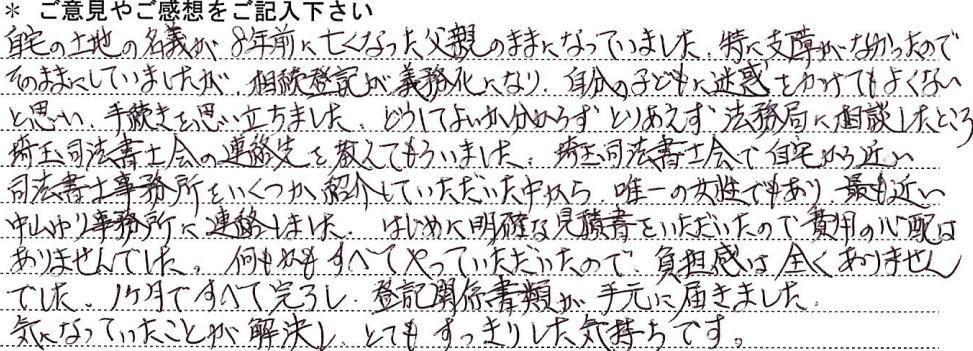 * ご意見やご感想をご記入下さい
自宅の土地の名義が8年前に亡くなった父親のままになっていました。特に支障がなかったので
そのままにしていましたが、相続登記が義務化になり、自分の子どもに迷惑をかけてもよくない
と思い、手続きを思い立ちました。どうしてよいか分からず とりあえず 法務局に相談したところ
埼玉司法書士会の連絡先を教えてもらいました。埼玉司法書士会で自宅から近い
司法書士事務所をいくつか紹介していただいた中から、唯一の女性でもあり 最も近い
中山ゆり事務所に連絡しました。はじめに明確な見積書をいただいたので費用の心配は
ありませんでした。何もかもすべてやっていただいたので、負担感は全くありません
でした。1ヶ月ですべて完了し、登記関係書類が手元に届きました。
気になっていたことが解決し、とてもすっきりした気持ちです。